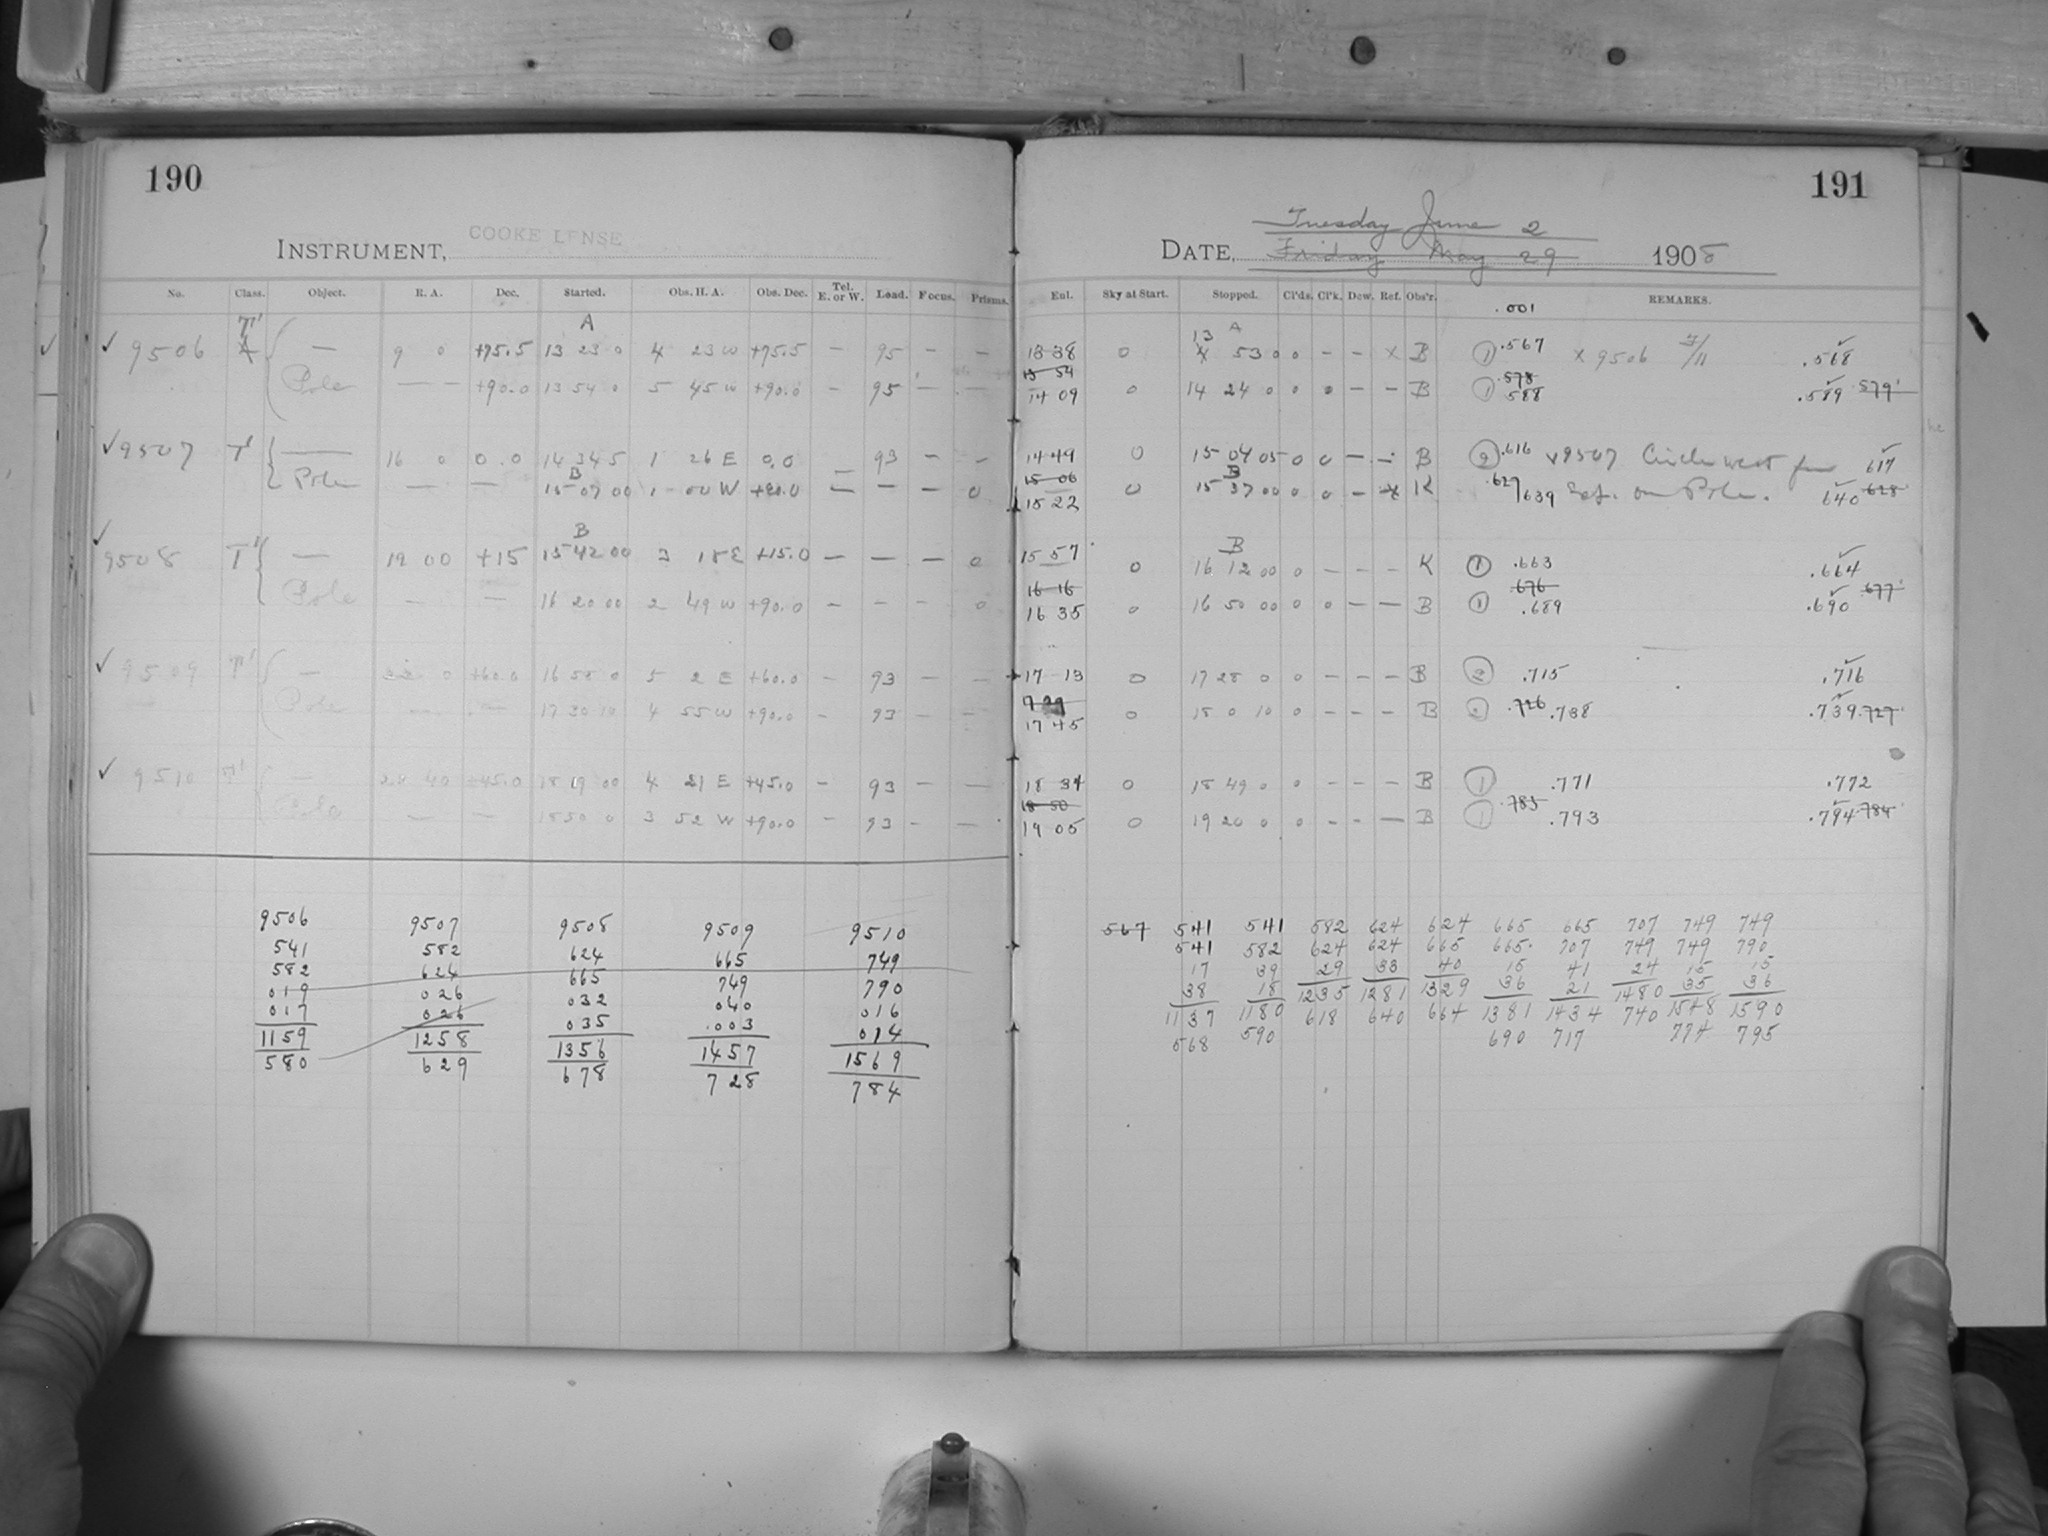 190
INSTRUMENT, COOKE LENSE
No. Class. Object. R. A. Dec. Started. Obs. H. A. Obs. Dec. Tel. E. or W. Load. Focus. Prisms.
A
T'
✓ 9506 A — 9 0 +75.5 13 23 0 4 23 W +75.5 — 95 — —
Pole — — +90.0 13 54 0 5 45 W +90.0 — 95 — —
✓ 9507 T' — 16 0 0.0 14 34 5 1 26 E 0.0 — 93 — —
B
Pole — — 15 07 00 1 00 W +90.0 — — — 0
B
✓
9508 T' — 19 00 +15 15 42 00 3 18 E +15.0 — — — 0
Pole — — 16 20 00 2 49 W +90.0 — — — 0
✓ 9509 T' — 0 +60.0 16 58 0 5 2 E +60.0 — 93 — —
Pole — — 17 30 10 4 55 W +90.0 — 93 — —
✓ 9510 T' — 40 +45.0 18 19 00 4 21 E +45.0 — 93 — —
Pole — — 18 50 0 3 52 W +90.0 — 93 — —
9506 9507 9508 9509 9510
541 582 624 665 749
582 624 665 749 790
019 026 032 040 016
017 026 035 .003 014
1159 1258 1356 1457 1569
580 629 678 728 784
191
Tuesday June 2
DATE, Friday May 29 1908
Eul. Sky at Start. Stopped. Cl'ds. Cl'k. Dew. Ref. Obs'r. REMARKS.
.001
13 A
13 38 0 X 53 0 0 — — X B 1 .567 X 9506 7/11 .568
13 54 .578
14 09 0 14 24 0 0 0 — — B 1 588 .589 .579
14 49 0 15 04 05 0 0 — — B 2 .616 X9507 Circle west for 617
15 06 B .627
15 22 0 15 37 00 0 0 — X K /639 Ref. on Pole. 640 628
B
15 57 0 16 12 00 0 — — — K 1 .663 .664
16 16 676 .677
16 35 0 16 50 00 0 0 — — B 1 .689 .690
17 13 0 17 28 0 0 — — — B 2 .715 .716
17 29
17 45 0 18 0 10 0 — — — B 2 .726 .738 .739 .727
18 34 0 18 49 0 0 — — — B 1 .771 .772
18 50 .783
19 05 0 19 20 0 0 — — — B 1 .793 .794 .784
567 541 541 582 624 624 665 665 707 749 749
541 582 624 624 665 665 707 749 749 790
17 39 29 33 40 15 41 24 15 15
38 18 1235 1281 1329 36 21 1480 35 36
1137 1180 618 640 664 1381 1434 740 1548 1590
568 590 690 717 774 795